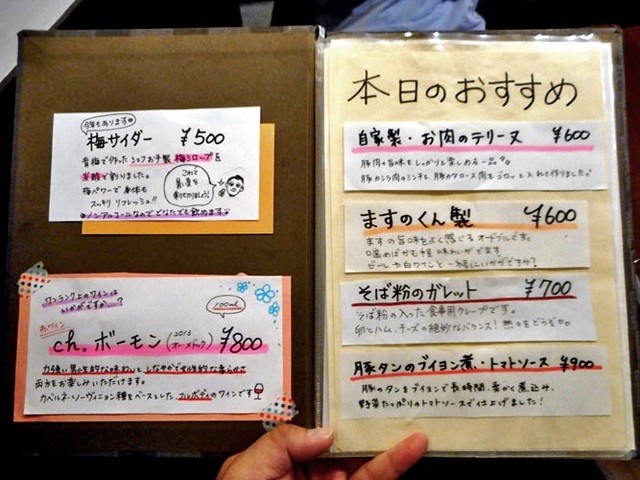 今年もあります
梅サイダー ¥500
青梅で作ったシェフお手製 梅シロップを
炭酸で割りました。
梅パワーで 身体も
スッキリ リフレッシュ!!
ノンアルコールなのでどなたでも飲めます。
これで
夏を
乗り切りましょう!
ワンランク上のワインは
いかがですか…?
100ml
赤ワイン
ch. ボーモン (2013 オー・メドック) ¥800
力強い男性的な味わいと、しなやかで女性的な柔らかさ
両方をお楽しみいただけます。
カベルネ・ソーヴィニヨン種をベースとした、フルボディのワインです
本日のおすすめ
自家製・お肉のテリーヌ ¥600
豚肉の旨味をしっかりと楽しめる一品
豚カシラ肉のミンチと、豚カタロース肉をゴロッと入れて作りました。
ますのくん製 ¥600
ますの旨味をよく感じるオードブルです。
噛めばかむ程 味わいがでます
ビールや白ワインと一緒にいかがですか?
そば粉のガレット ¥700
そば粉の入った食事用クレープです。
卵とハム、チーズの絶妙なバランス! 熱々をどうぞ。
豚タンのブイヨン煮・トマトソース ¥900
豚のタンをブイヨンで長時間、柔かく煮込み、
野菜たっぷりのトマトソースで仕上げました!